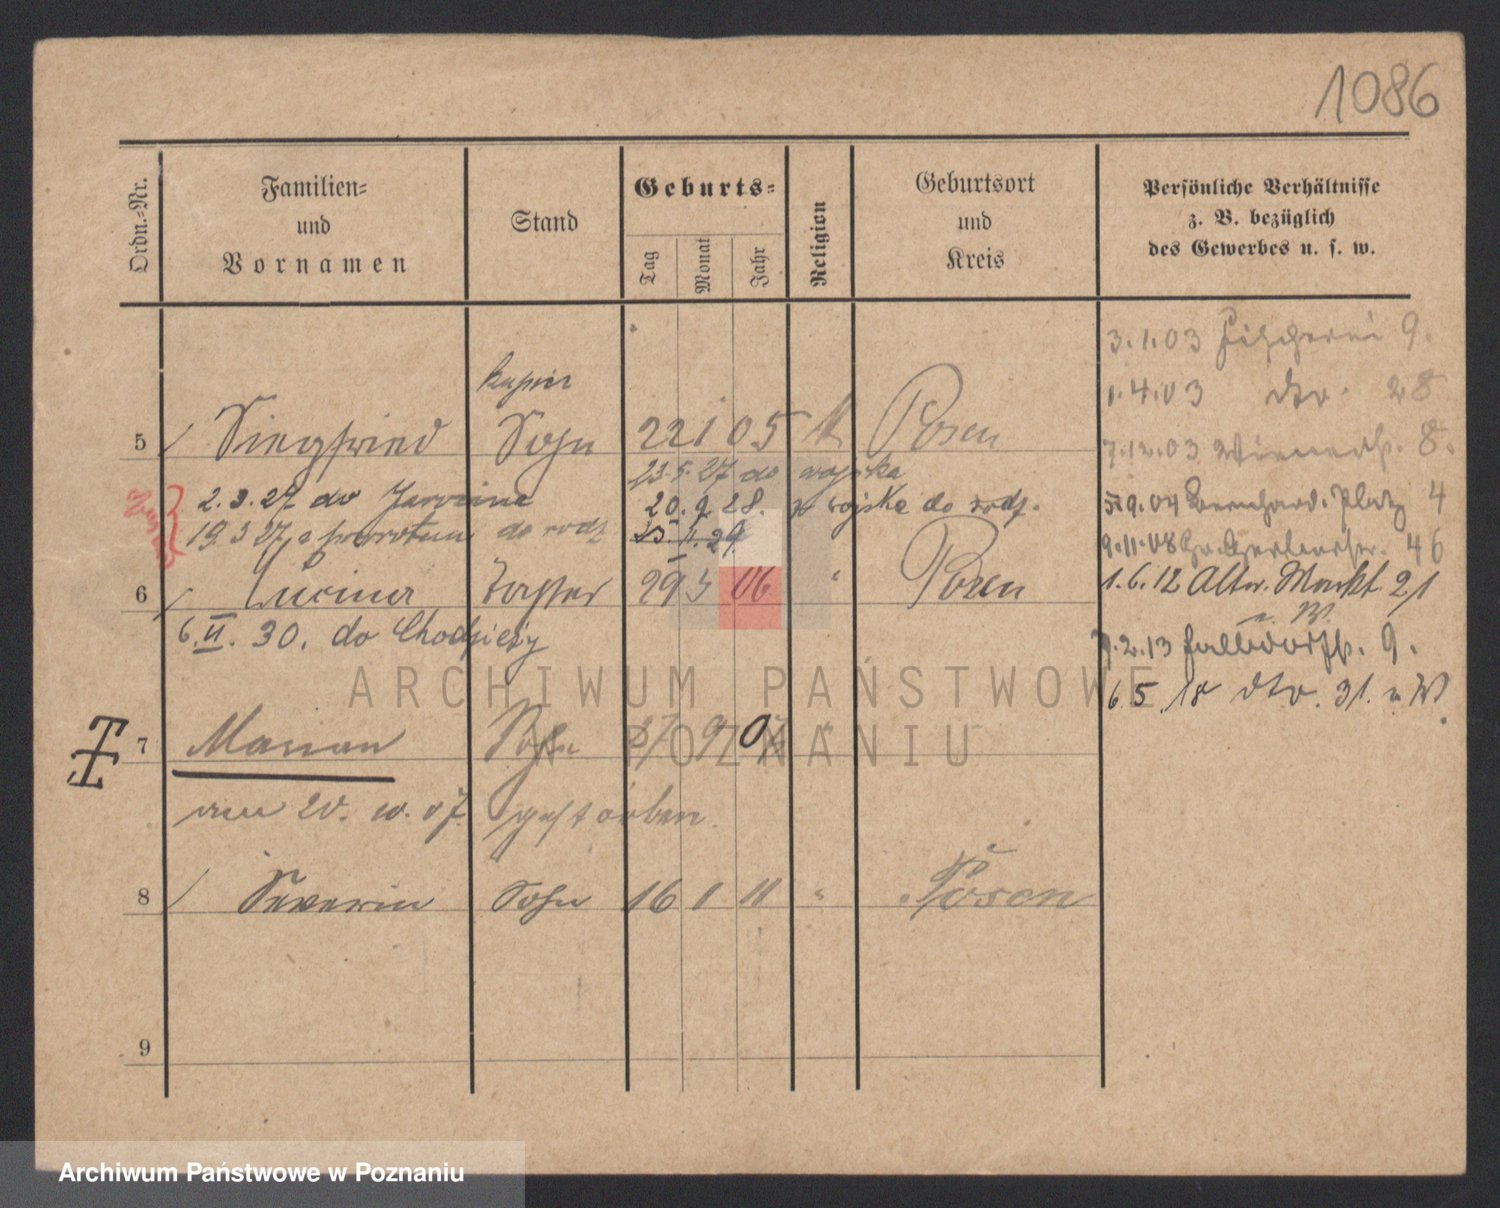 1086
Ordn.-Nr.
Familien-
und
Vornamen
Stand
Geburts-
Tag
Monat
Jahr
Religion
Geburtsort
und
Kreis
Persönliche Verhältnisse
z. B. bezüglich
des Gewerbes u. s. w.
3.1.03 Fischerei 9.
1.4.03 dto. 28
7.12.03 8.
9.04 Bernhard. Platz 4
9.11.08 Gr. Gerberstr. 46
1.6.12 Alter Markt 21
2.13 9.
6.5.18 dto. 31. u. W.
kupiec
5 Siegfried Sohn 22 1 05 Posen
23.5.27 do wojska
2.3.27 do Jarocina
20.9.28. z wojska do rodz.
19.3.27 z powrotem do rodz.
6 Lucina Tochter 29 3 06 " Posen
6.II.30. do Chodzieży
7 Marian Sohn 9 "
am 20. 10. 07. gestorben.
8 Severin Sohn 16 1 11 " Posen
9
ARCHIWUM PAŃSTWOWE
W POZNANIU
Archiwum Państwowe w Poznaniu